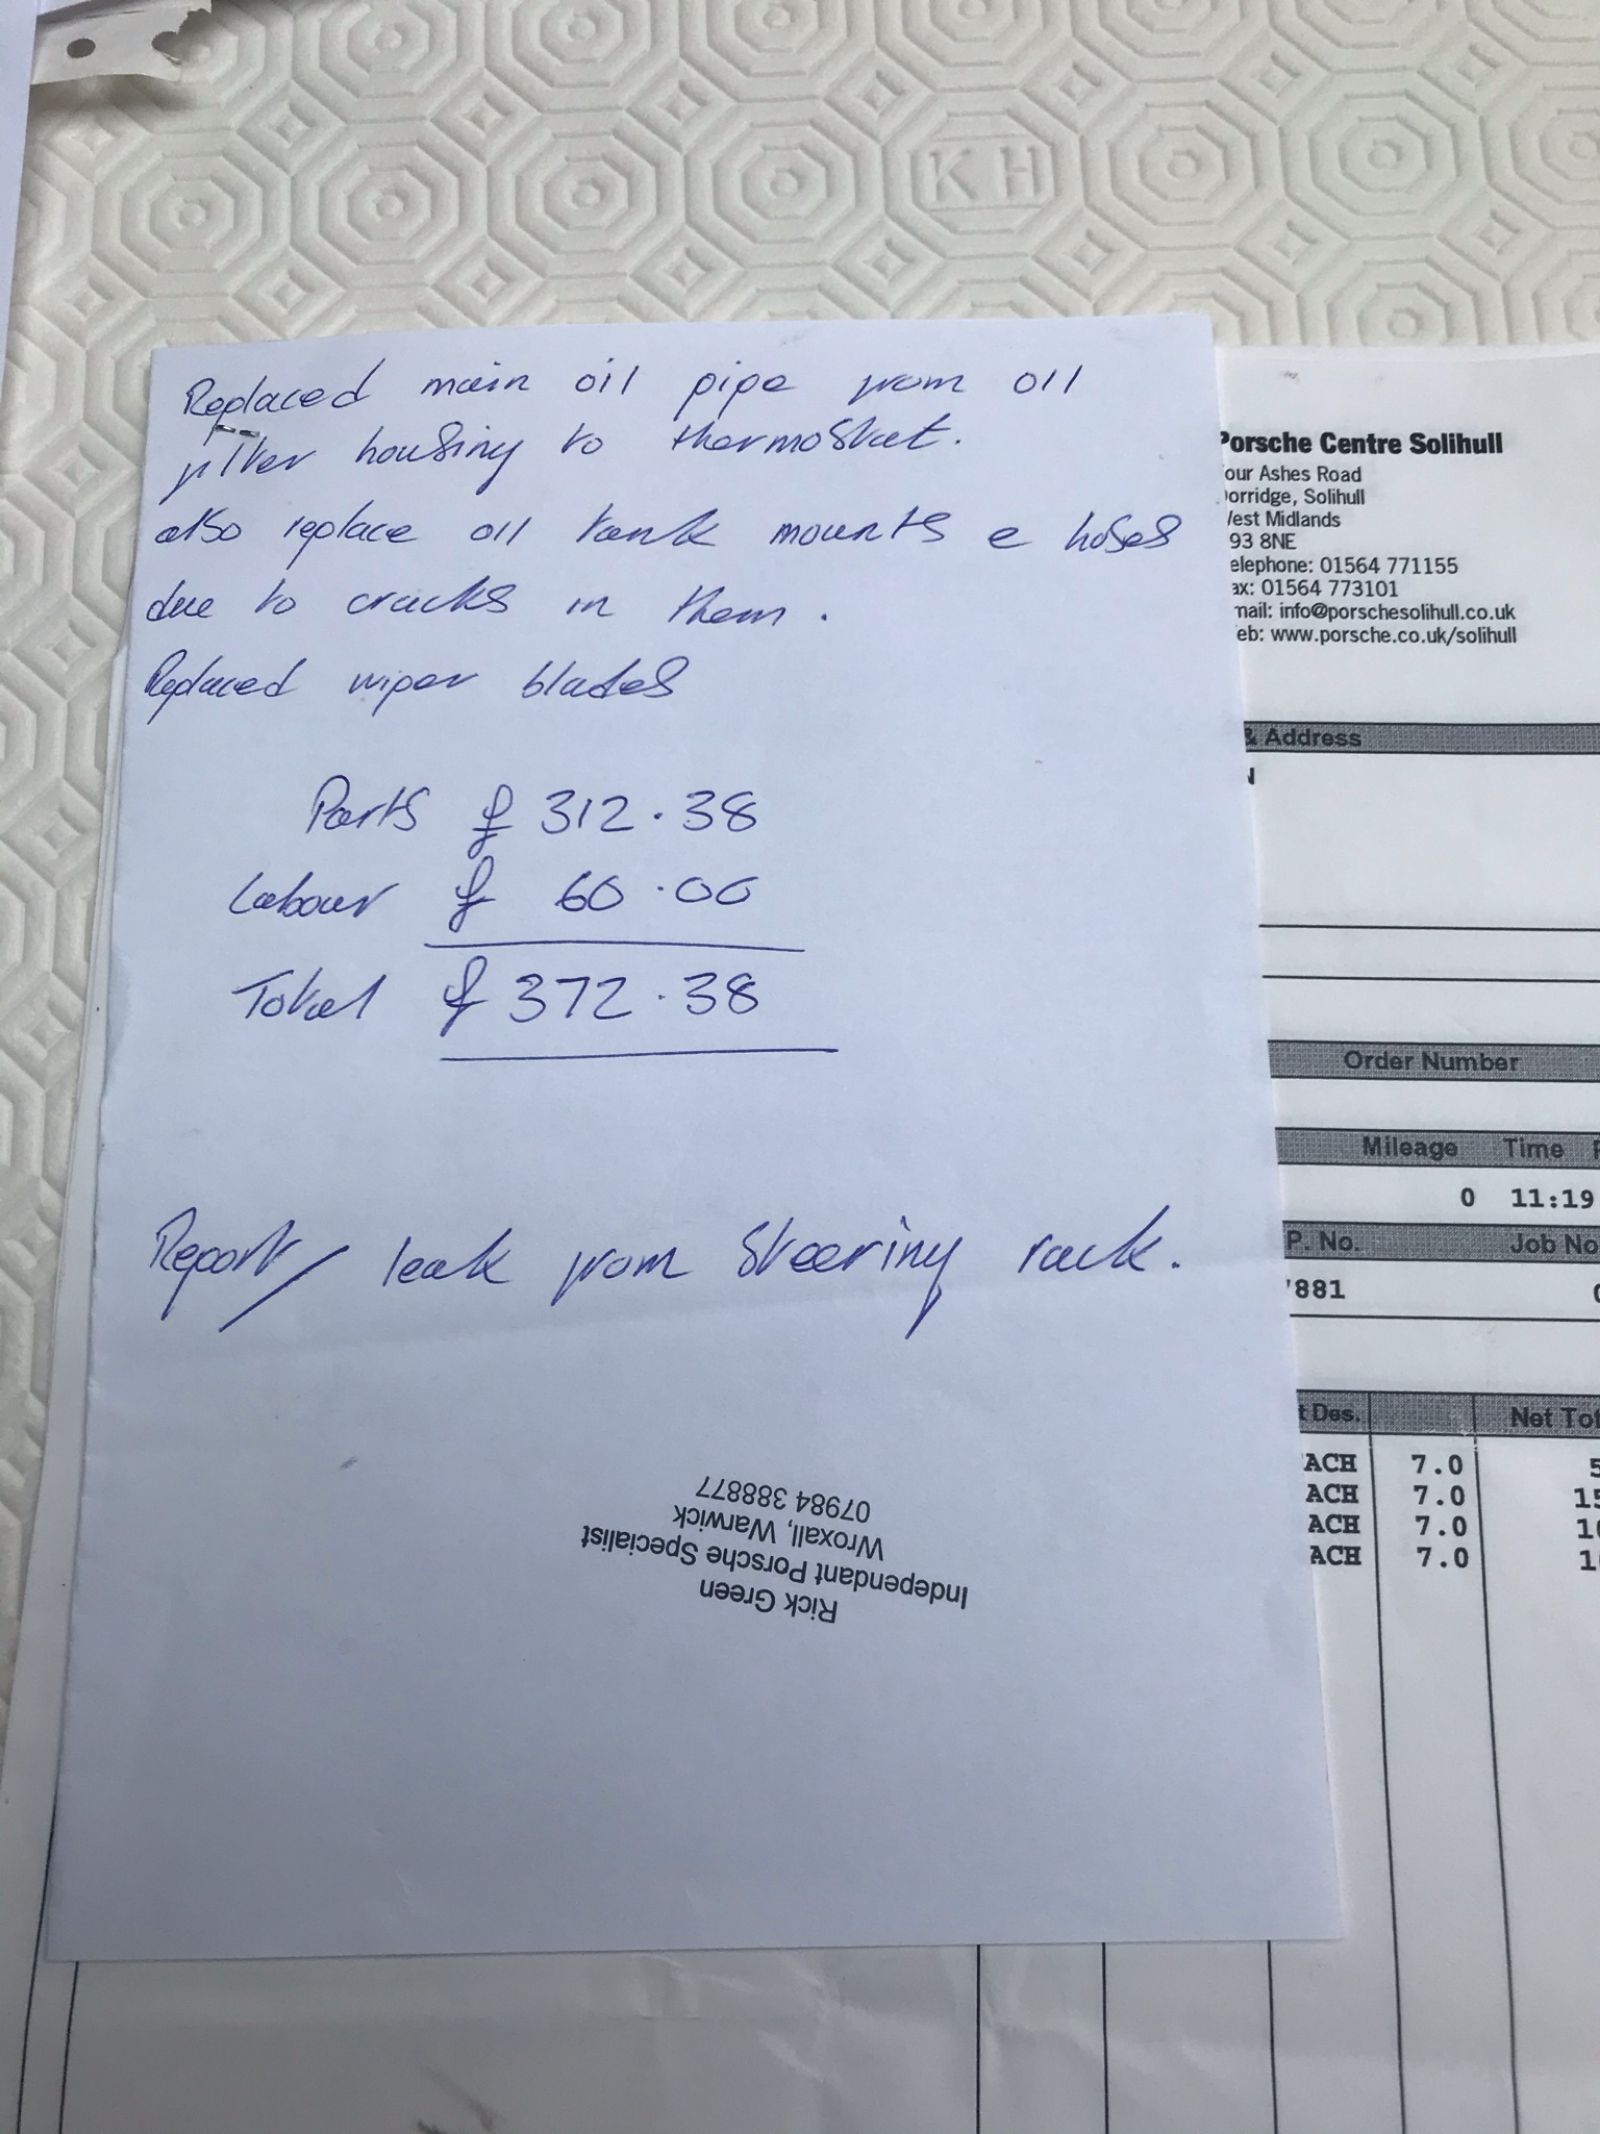 KH
Replaced main oil pipe from oil
filter housing to thermostat.
also replace oil tank mounts e hoses
due to cracks in them.
Replaced wiper blades
Parts £ 312.38
Labour £ 60.00
Total £ 372.38
Report/ leak from steering rack.
Rick Green
Independant Porsche Specialist
Wroxall, Warwick
07984 388877
Porsche Centre Solihull
our Ashes Road
orridge, Solihull
West Midlands
93 8NE
elephone: 01564 771155
ax: 01564 773101
mail: info@porschesolihull.co.uk
eb: www.porsche.co.uk/solihull
& Address
N
Order Number
Mileage Time
0 11:19
P. No. Job No
7881
t Des. Net Tot
ACH 7.0 5
ACH 7.0 15
ACH 7.0 10
ACH 7.0 1